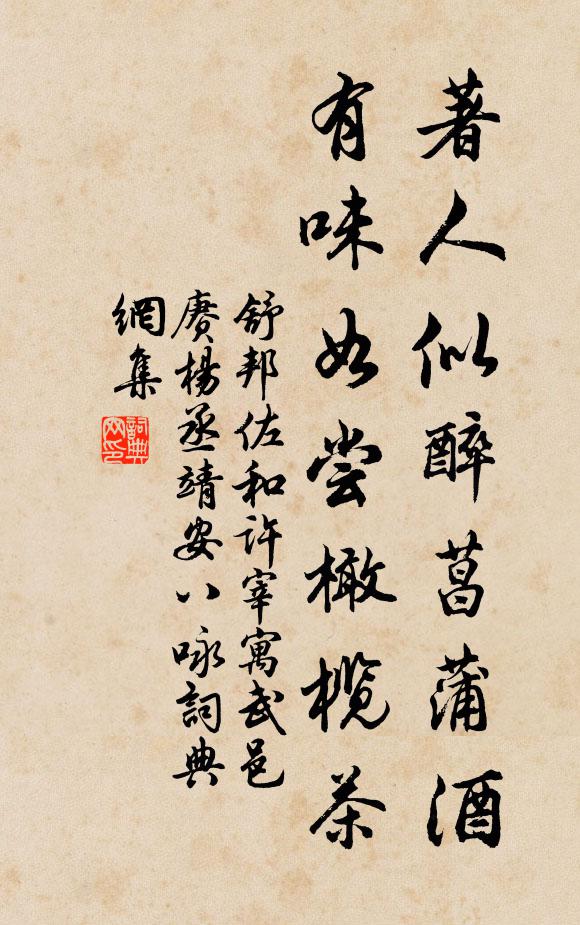 著人似醉菖蒲酒
有味如尝橄榄茶
舒邦佐和许宰寓武邑
赓杨丞靖安八咏詞典
網集
詞典
网印